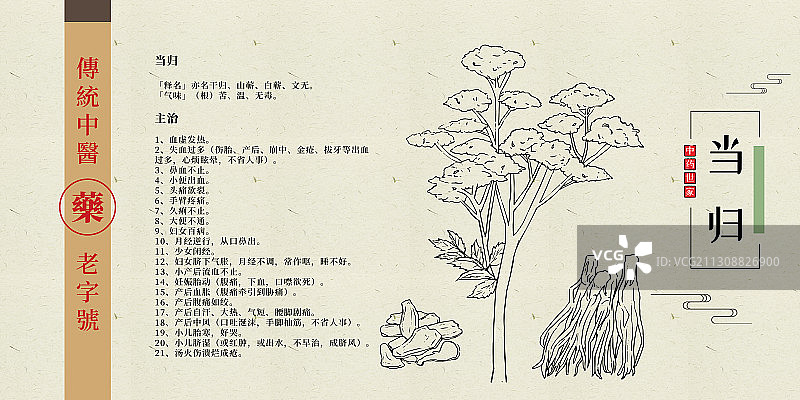 傳統中醫
藥
老字號
当归
「释名」亦名干归、山蕲、白蕲、文无。
「气味」（根）苦、温、无毒。
主治
1、血虚发热。
2、失血过多（伤胎、产后、崩中、金疮、拔牙等出血
过多，心烦眩晕，不省人事）。
3、鼻血不止。
4、小便出血。
5、头痛欲裂。
6、手臂疼痛。
7、久痢不止。
8、大便不通。
9、妇女百病。
10、月经逆行，从口鼻出。
11、少女闭经。
12、妇女脐下气胀，月经不调，常作呕，睡不好。
13、小产后流血不止。
14、妊娠胎动（腹痛，下血，口噤欲死）。
15、产后血胀（腹痛牵引到胁痛）。
16、产后腹痛如绞。
17、产后自汗、大热、气短、腰脚剧痛。
18、产后中风（口吐涎沫，手脚抽筋，不省人事）。
19、小儿胎寒，好哭。
20、小儿脐湿（或红肿，或出水，不早治，成脐风）。
21、汤火伤溃烂成疮。
当归
中药世家
VCG
VCG.COM
VCG211308826900